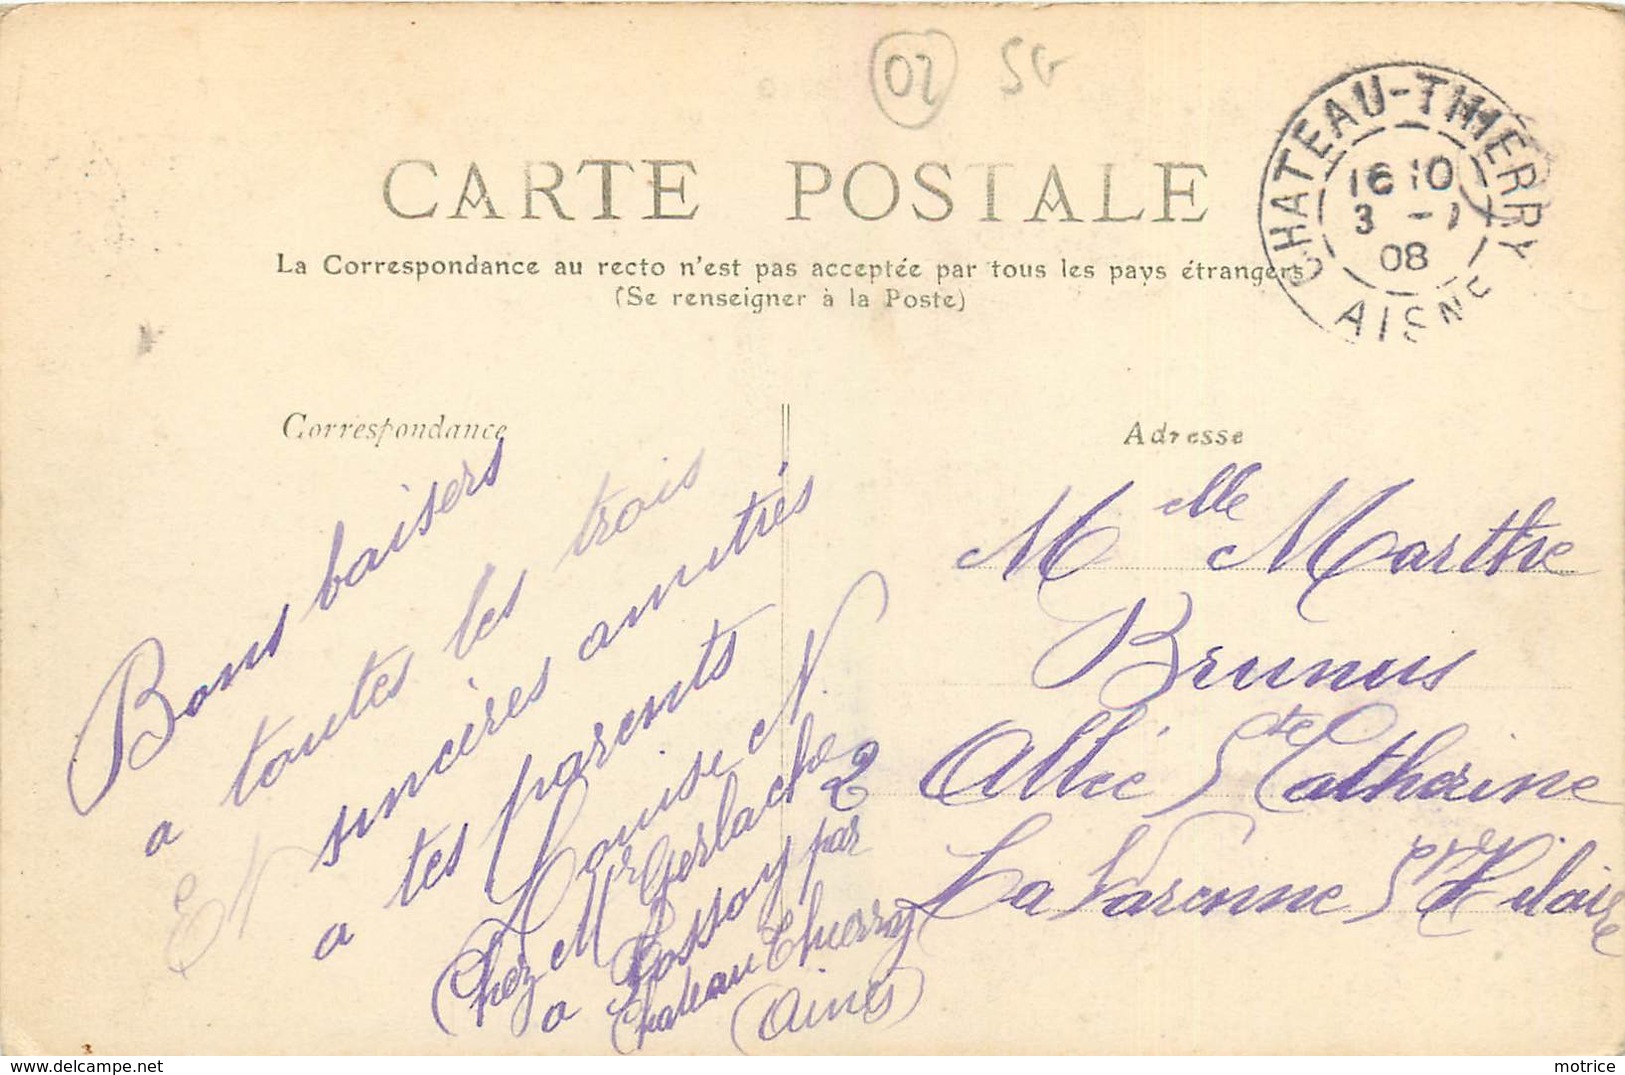 02 SG
CHATEAU-THIERRY
16 10
3 -1
08
AISNE
CARTE POSTALE
La Correspondance au recto n'est pas acceptée par tous les pays étrangers
(Se renseigner à la Poste)
Correspondance
Bons baisers
a toutes les trois
Et sincères amitiés
a tes parents
Louise N.
Chez Mr Gerlache
a Bossoy par
Chateau Thierry
(Aines)
Adresse
Melle Marthe
Brunus
2 Allée Ste Catherine
La Varenne St Hilaire
motrice